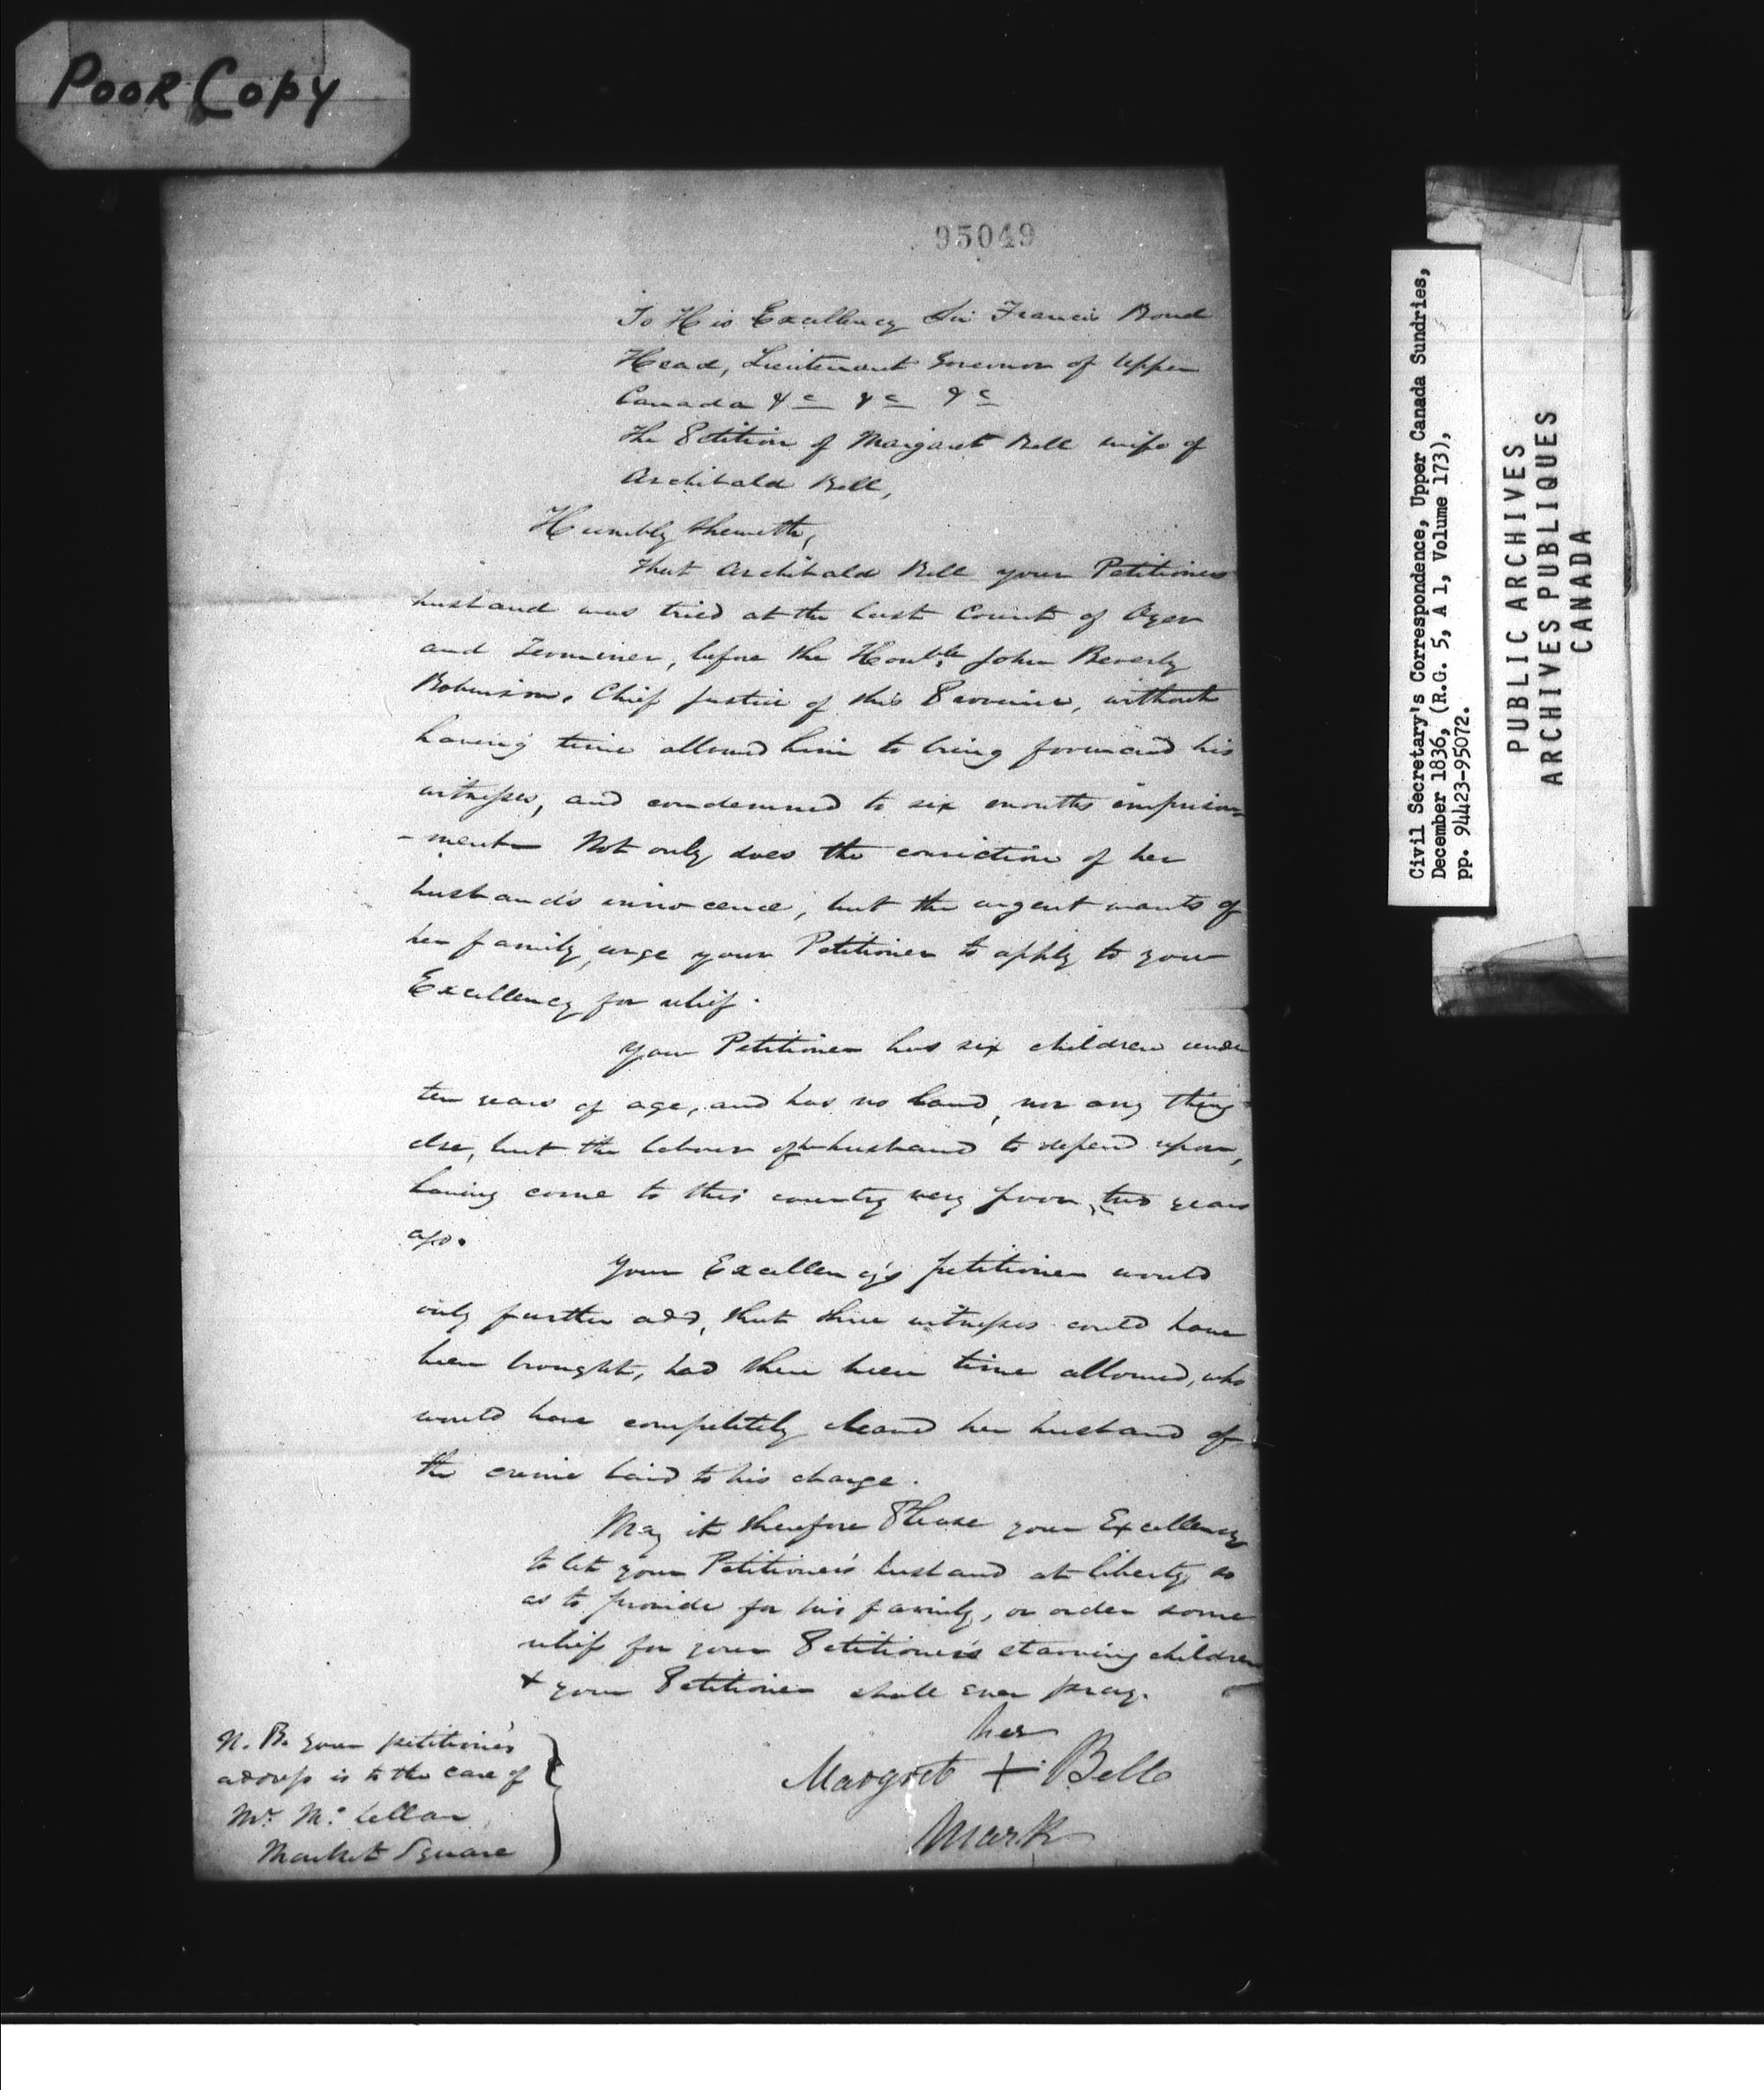 POOR COPY
95049
To His Excellency Sir Francis Bond
Head, Lieutenant Governor of Upper
Canada &c &c &c
The Petition of Margaret Bell wife of
Archibald Bell,
Humbly Sheweth,
That Archibald Bell your Petitioners
husband was tried at the last Court of Oyer
and Terminer, before the Honble John Beverly
Robinson, Chief Justice of this Province, without
having time allowed him to bring forward his
witnesses, and condemned to six months imprison-
-ment Not only does the conviction of her
husband's innocence, but the urgent wants of
her family, urge your Petitioner to apply to your
Excellency for relief.
Your Petitioner has six children under
ten years of age, and has no land, nor any thing
else, but the labour of her husband to depend upon,
having come to this country very poor, two years
ago.
Your Excellency's petitioner would
only further add, that three witnesses could have
been brought, had there been time allowed, who
would have completely cleared her husband of
the crime laid to his charge.
May it therefore Please your Excellency
to let your Petitioner's husband at liberty, so
as to provide for his family, or order some
relief for your Petitioner's starving children
& your Petitioner shall ever pray.
her
Margret + Bell
Mark
N. B. your petitioner's
address is to the care of
Mr. Mc Lellan
Market Square
Civil Secretary's Correspondence, Upper Canada Sundries,
December 1836, (R.G. 5, A 1, Volume 173),
pp. 94423-95072.
PUBLIC ARCHIVES
ARCHIVES PUBLIQUES
CANADA